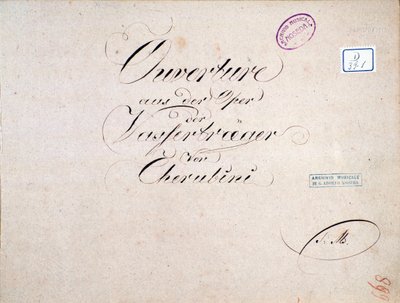 Ouverture
aus der Oper
der
Wasserträger
von
Cherubini
ARCHIVIO MUSICALE
D